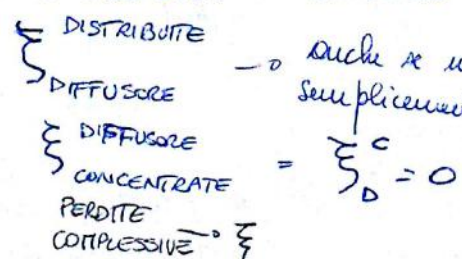 ξ DISTRIBUITE DIFFUSORE → anche se
ξ DIFFUSORE CONCENTRATE = ξ_D^C = 0
PERDITE
COMPLESSIVE → ξ